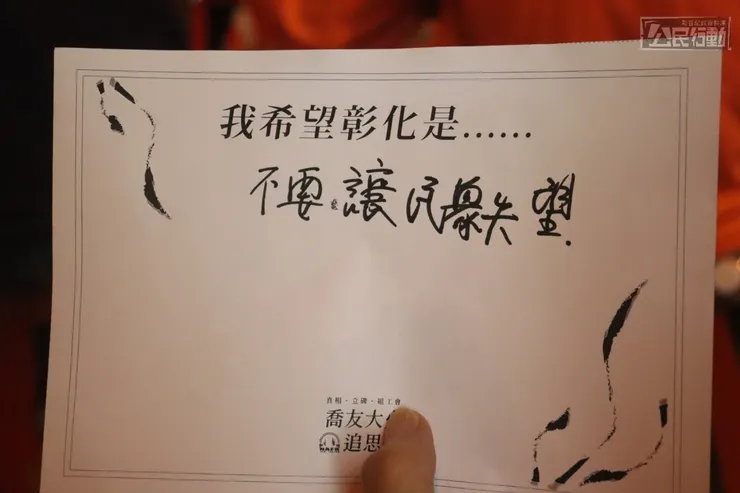 公民行動
我希望彰化是……
不要讓民眾失望.
真相・立碑・組工會
喬友大
追思